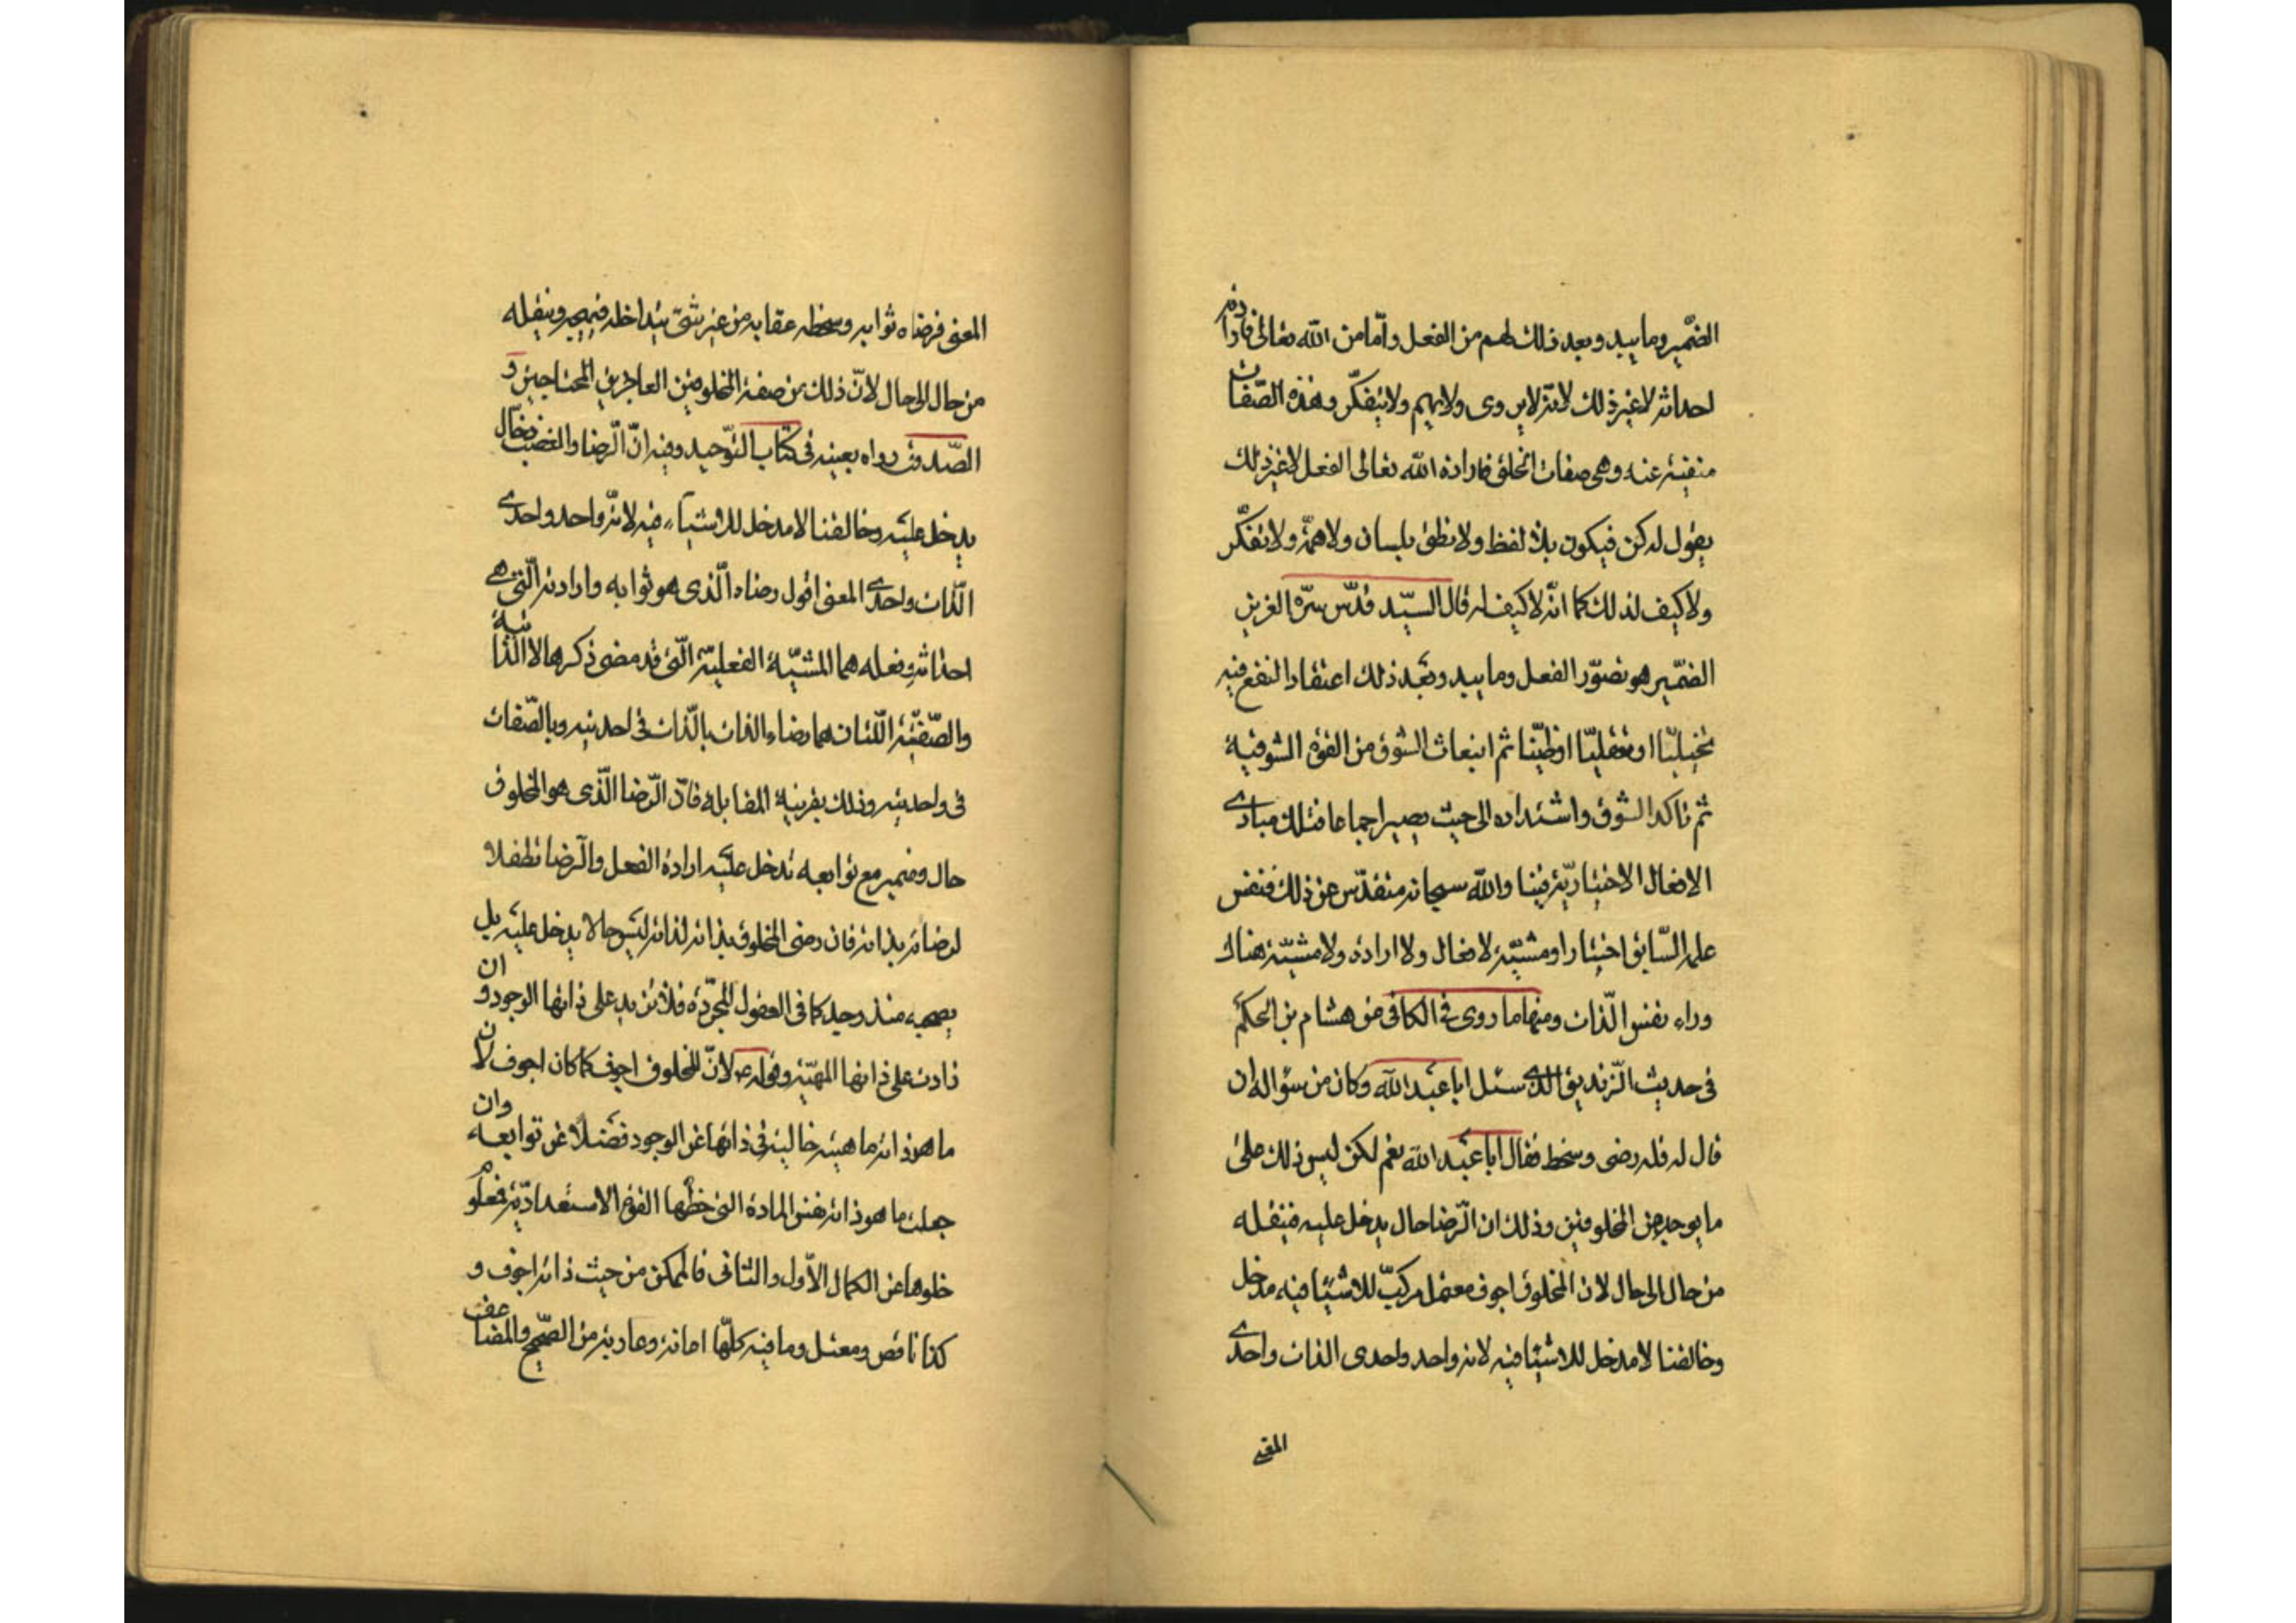 الضمير وما يبدو بعد ذلك لهم من الفعل وأمّا من الله تعالى فارادته
احداثه لا غير ذلك لانّه لا يروى ولا يهم ولا يتفكّر وهذه الصّفات
منفيّة عنه وهى صفات الخلق فارادة الله تعالى الفعل لا غير ذلك
يقول له كن فيكون بلا لفظ ولا نطق بلسان ولا همّة ولا تفكّر
ولا كيف لذلك كما انّه لا كيف له قال السيّد قدّس سرّه العزيز
الضّمير هو تصوّر الفعل وما يبدو بعد ذلك اعتقاد النفع فيه
تخيليّا او تعقليّا او ظنّيا ثم انبعاث الشوق من القوة الشوقية
ثم تاكد الشوق واشتداده الى حيث يصير اجماعا فتلك مبادى
الافعال الاختياريّة فينا والله سبحانه متقدّس عن ذلك فنفس
علمه السّابق اختيارا ومشيّة لافعال ولا ارادة ولا مشيّة هناك
وراء نفس الذّات ومنها ما روى فى الكافى من هشام بن الحكم
فى حديث الزّنديق الذى سئل ابا عبد الله وكان من سؤاله ان
قال له فله رضى وسخط فقال ابا عبد الله نعم لكن ليس ذلك على
ما يوجد من المخلوقين وذلك ان الرّضا حال يدخل عليه فتنقله
من حال الى حال لان المخلوق اجوف معتمل مركّب للاشيا فيه مدخل
وخالقنا لا مدخل للاشيا فيه لانه واحد واحدى الذات واحدى
المعنى
المعنى فرضاه ثوابه وسخطه عقابه من غير شئ يتداخله فيهيجه وينقله
من حال الى حال لانّ ذلك من صفة المخلوقين العاجزين المحتاجين و
الصّدوق رواه بعينه فى كتاب التوّحيد وفيه انّ الرّضا والغضب دخال
يدخل عليه وخالقنا لا مدخل للاشياء فيه لانّه واحد واحدى
الذّات واحدى المعنى اقول رضاه الّذى هو ثوابه وارادته الّتى هى
احداثه وفعله هما المشيّة الفعليّة الّتى قد مضى ذكرها لا الذاتية
والصّفتيّة اللّتان هما رضاء الذات بالذّات فى احديته وبالصّفات
فى واحديته وذلك بقرينة المقابلة فانّ الرّضا الّذى هو المخلوق
حال وضمير مع توابعه تدخل عليه ارادة الفعل والرّضا تطفلا
لرضائه بذاته فان رضى المخلوق بذاته لذاته ليس حالا يدخل عليه بل
منذ وحيد كما فى العقول المجرّدة فلا تزيد على ذاتها الوجود وان
زادت على ذاتها المهيّة وقوله ع لانّ المخلوق اجوف كما كان اجوف لان
ما هو ذاته ماهيته خالية فى ذاتها عن الوجود فضلا عن توابعه وان
جعلت ما هو ذاته نفس المادة التى حظّها القوة الاستعداديّة فمعلوم
خلوها عن الكمال الاوّل والثانى فالممكن من حيث ذاته اجوف و
كذا ناقص ومعتل وما فيه كلّها امانة وعارية من الصّحيح والمضاعف